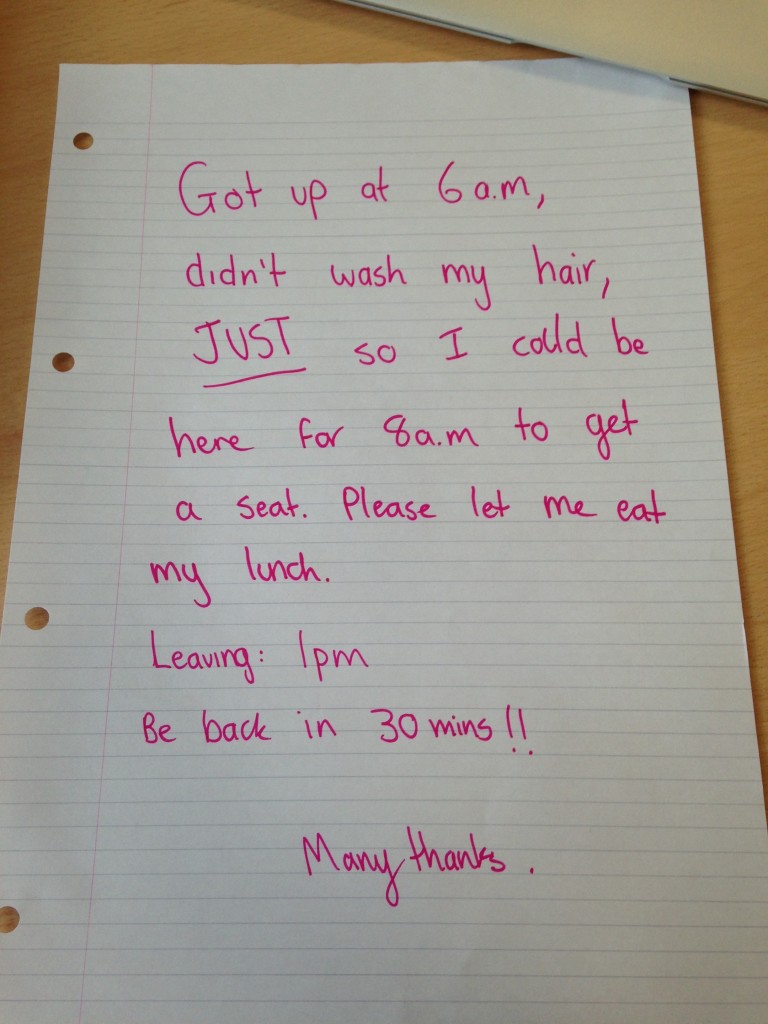 Got up at 6a.m,
didn't wash my hair,
JUST so I could be
here for 8a.m to get
a seat. Please let me eat
my lunch.
Leaving: 1pm
Be back in 30 mins!!
Many thanks.